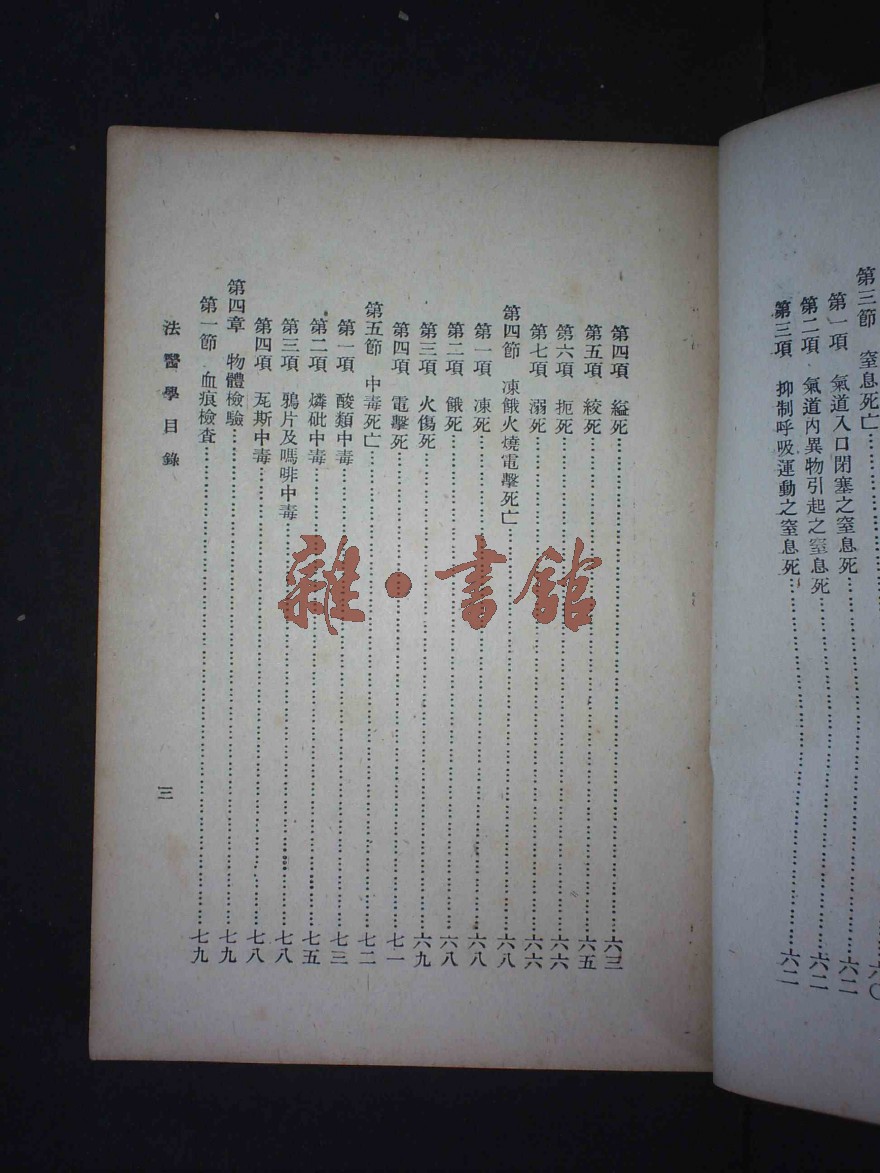 第三節 窒息死亡…………六〇
第一項 氣道入口閉塞之窒息死…………六二
第二項 氣道內異物引起之窒息死…………六二
第三項 抑制呼吸運動之窒息死…………六二
第四項 縊死…………六三
第五項 絞死…………六五
第六項 扼死…………六六
第七項 溺死…………六六
第四節 凍餓火燒電擊死亡…………六八
第一項 凍死…………六八
第二項 餓死…………六八
第三項 火傷死…………六九
第四項 電擊死…………七一
第五節 中毒死亡…………七二
第一項 酸類中毒…………七三
第二項 燐砒中毒…………七五
第三項 鴉片及嗎啡中毒…………七八
第四項 瓦斯中毒…………七八
第四章 物體檢驗…………七九
第一節 血痕檢查…………七九
法醫學目錄
三
雜·書館